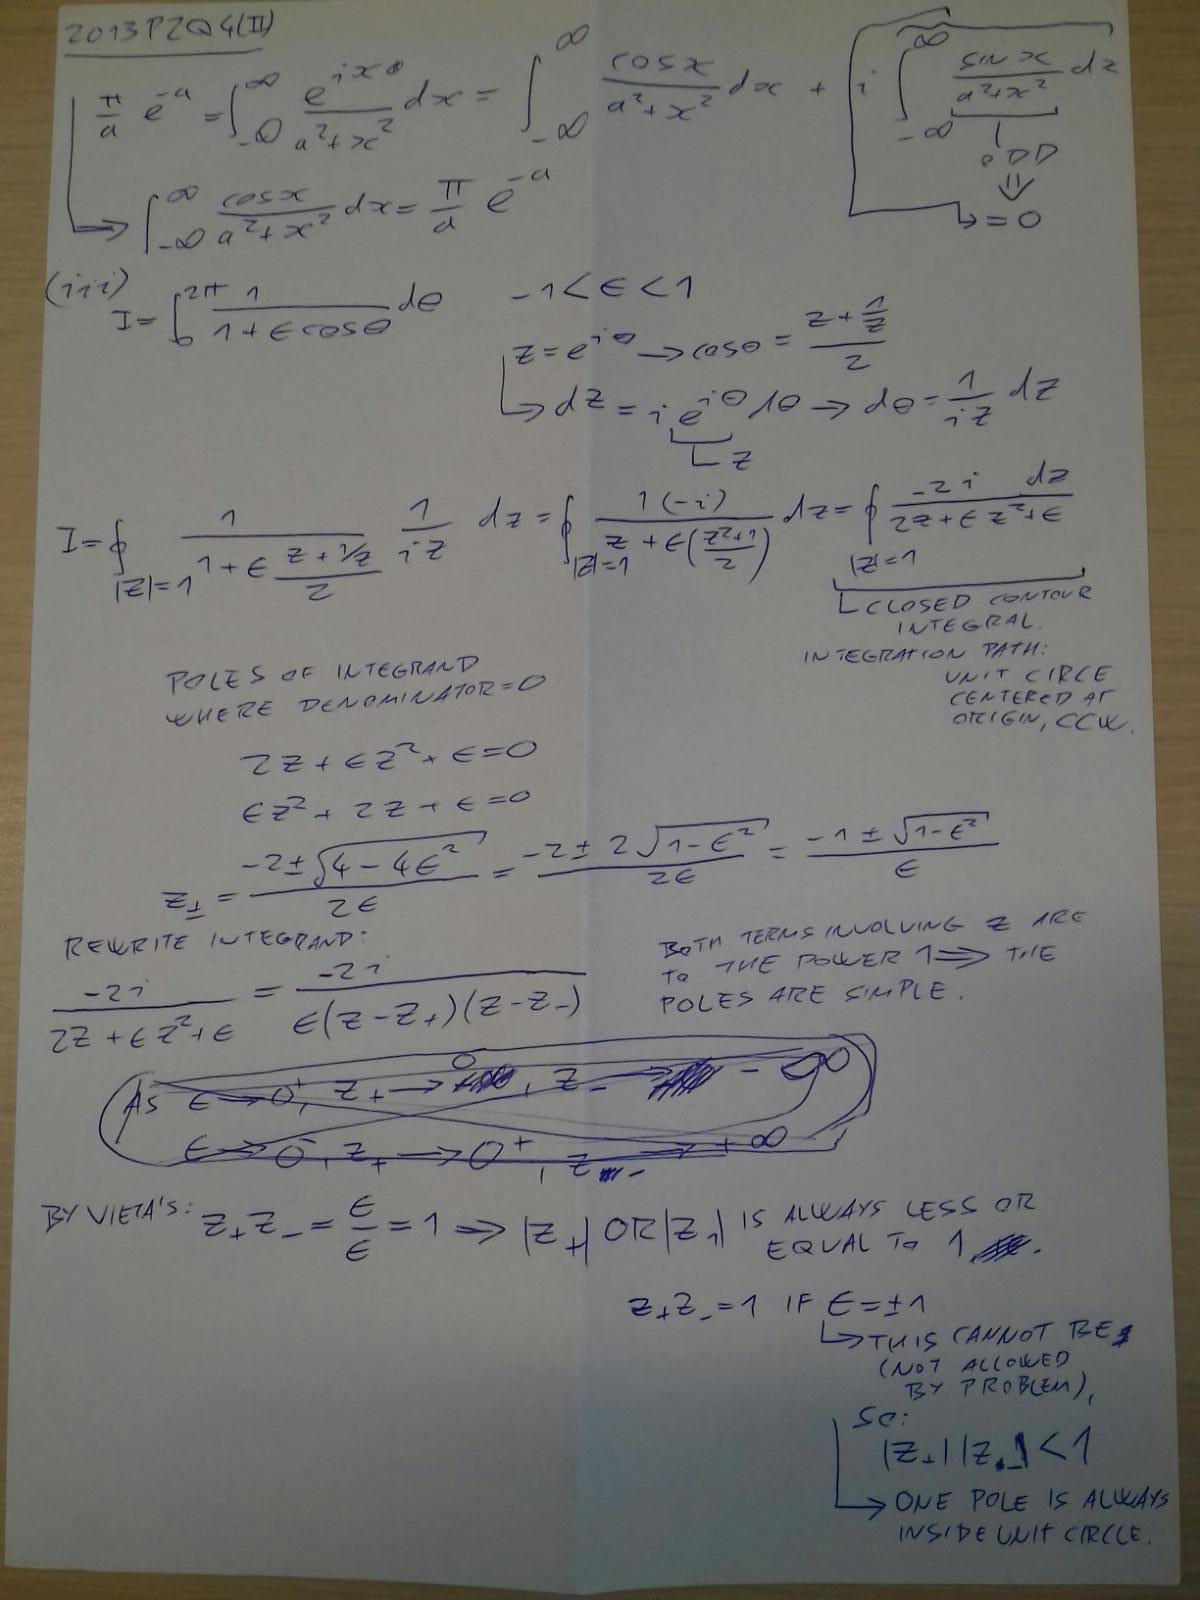 2013 P2Q4(II)
π/a e^-a = ∫_-∞^∞ e^ix/(a²+x²) dx = ∫_-∞^∞ cosx/(a²+x²) dx + i ∫_-∞^∞ sinx/(a²+x²) dx
ODD
⇓
= 0
→ ∫_-∞^∞ cosx/(a²+x²) dx = π/a e^-a
(iii)
I = ∫_0^2π 1/(1+ϵcosθ) dθ   -1<ϵ<1
z = e^iθ → cosθ = (z + 1/z)/2
→ dz = i e^iθ dθ → dθ = 1/(iz) dz
z
I = ∮_|z|=1 1/(1+ϵ (z+1/z)/2) 1/(iz) dz = ∮_|z|=1 1(-i)/(z+ϵ((z²+1)/2)) dz = ∮_|z|=1 -2i dz/(2z+ϵz²+ϵ)
CLOSED CONTOUR
INTEGRAL.
INTEGRATION PATH:
UNIT CIRCLE
CENTERED AT
ORIGIN, CCW.
POLES OF INTEGRAND
WHERE DENOMINATOR=0
2z + ϵz² + ϵ = 0
ϵz² + 2z + ϵ = 0
z± = (-2±√(4-4ϵ²))/2ϵ = (-2±2√(1-ϵ²))/2ϵ = (-1±√(1-ϵ²))/ϵ
REWRITE INTEGRAND:
-2i/(2z+ϵz²+ϵ) = -2i/(ϵ(z-z₊)(z-z₋))
BOTH TERMS INVOLVING z ARE
TO THE POWER 1 ⇒ THE
POLES ARE SIMPLE.
AS ϵ → 0⁺, z₊ → 0, z₋ → -∞
ϵ → 0⁻, z₊ → 0⁺, z₋ → +∞
BY VIETA'S: z₊z₋ = ϵ/ϵ = 1 ⇒ |z₊| OR |z₋| IS ALWAYS LESS OR
EQUAL TO 1.
z₊z₋ = 1 IF ϵ = ±1
→ THIS CANNOT BE
(NOT ALLOWED
BY PROBLEM),
SO:
|z₊| |z₋| < 1
→ ONE POLE IS ALWAYS
INSIDE UNIT CIRCLE.